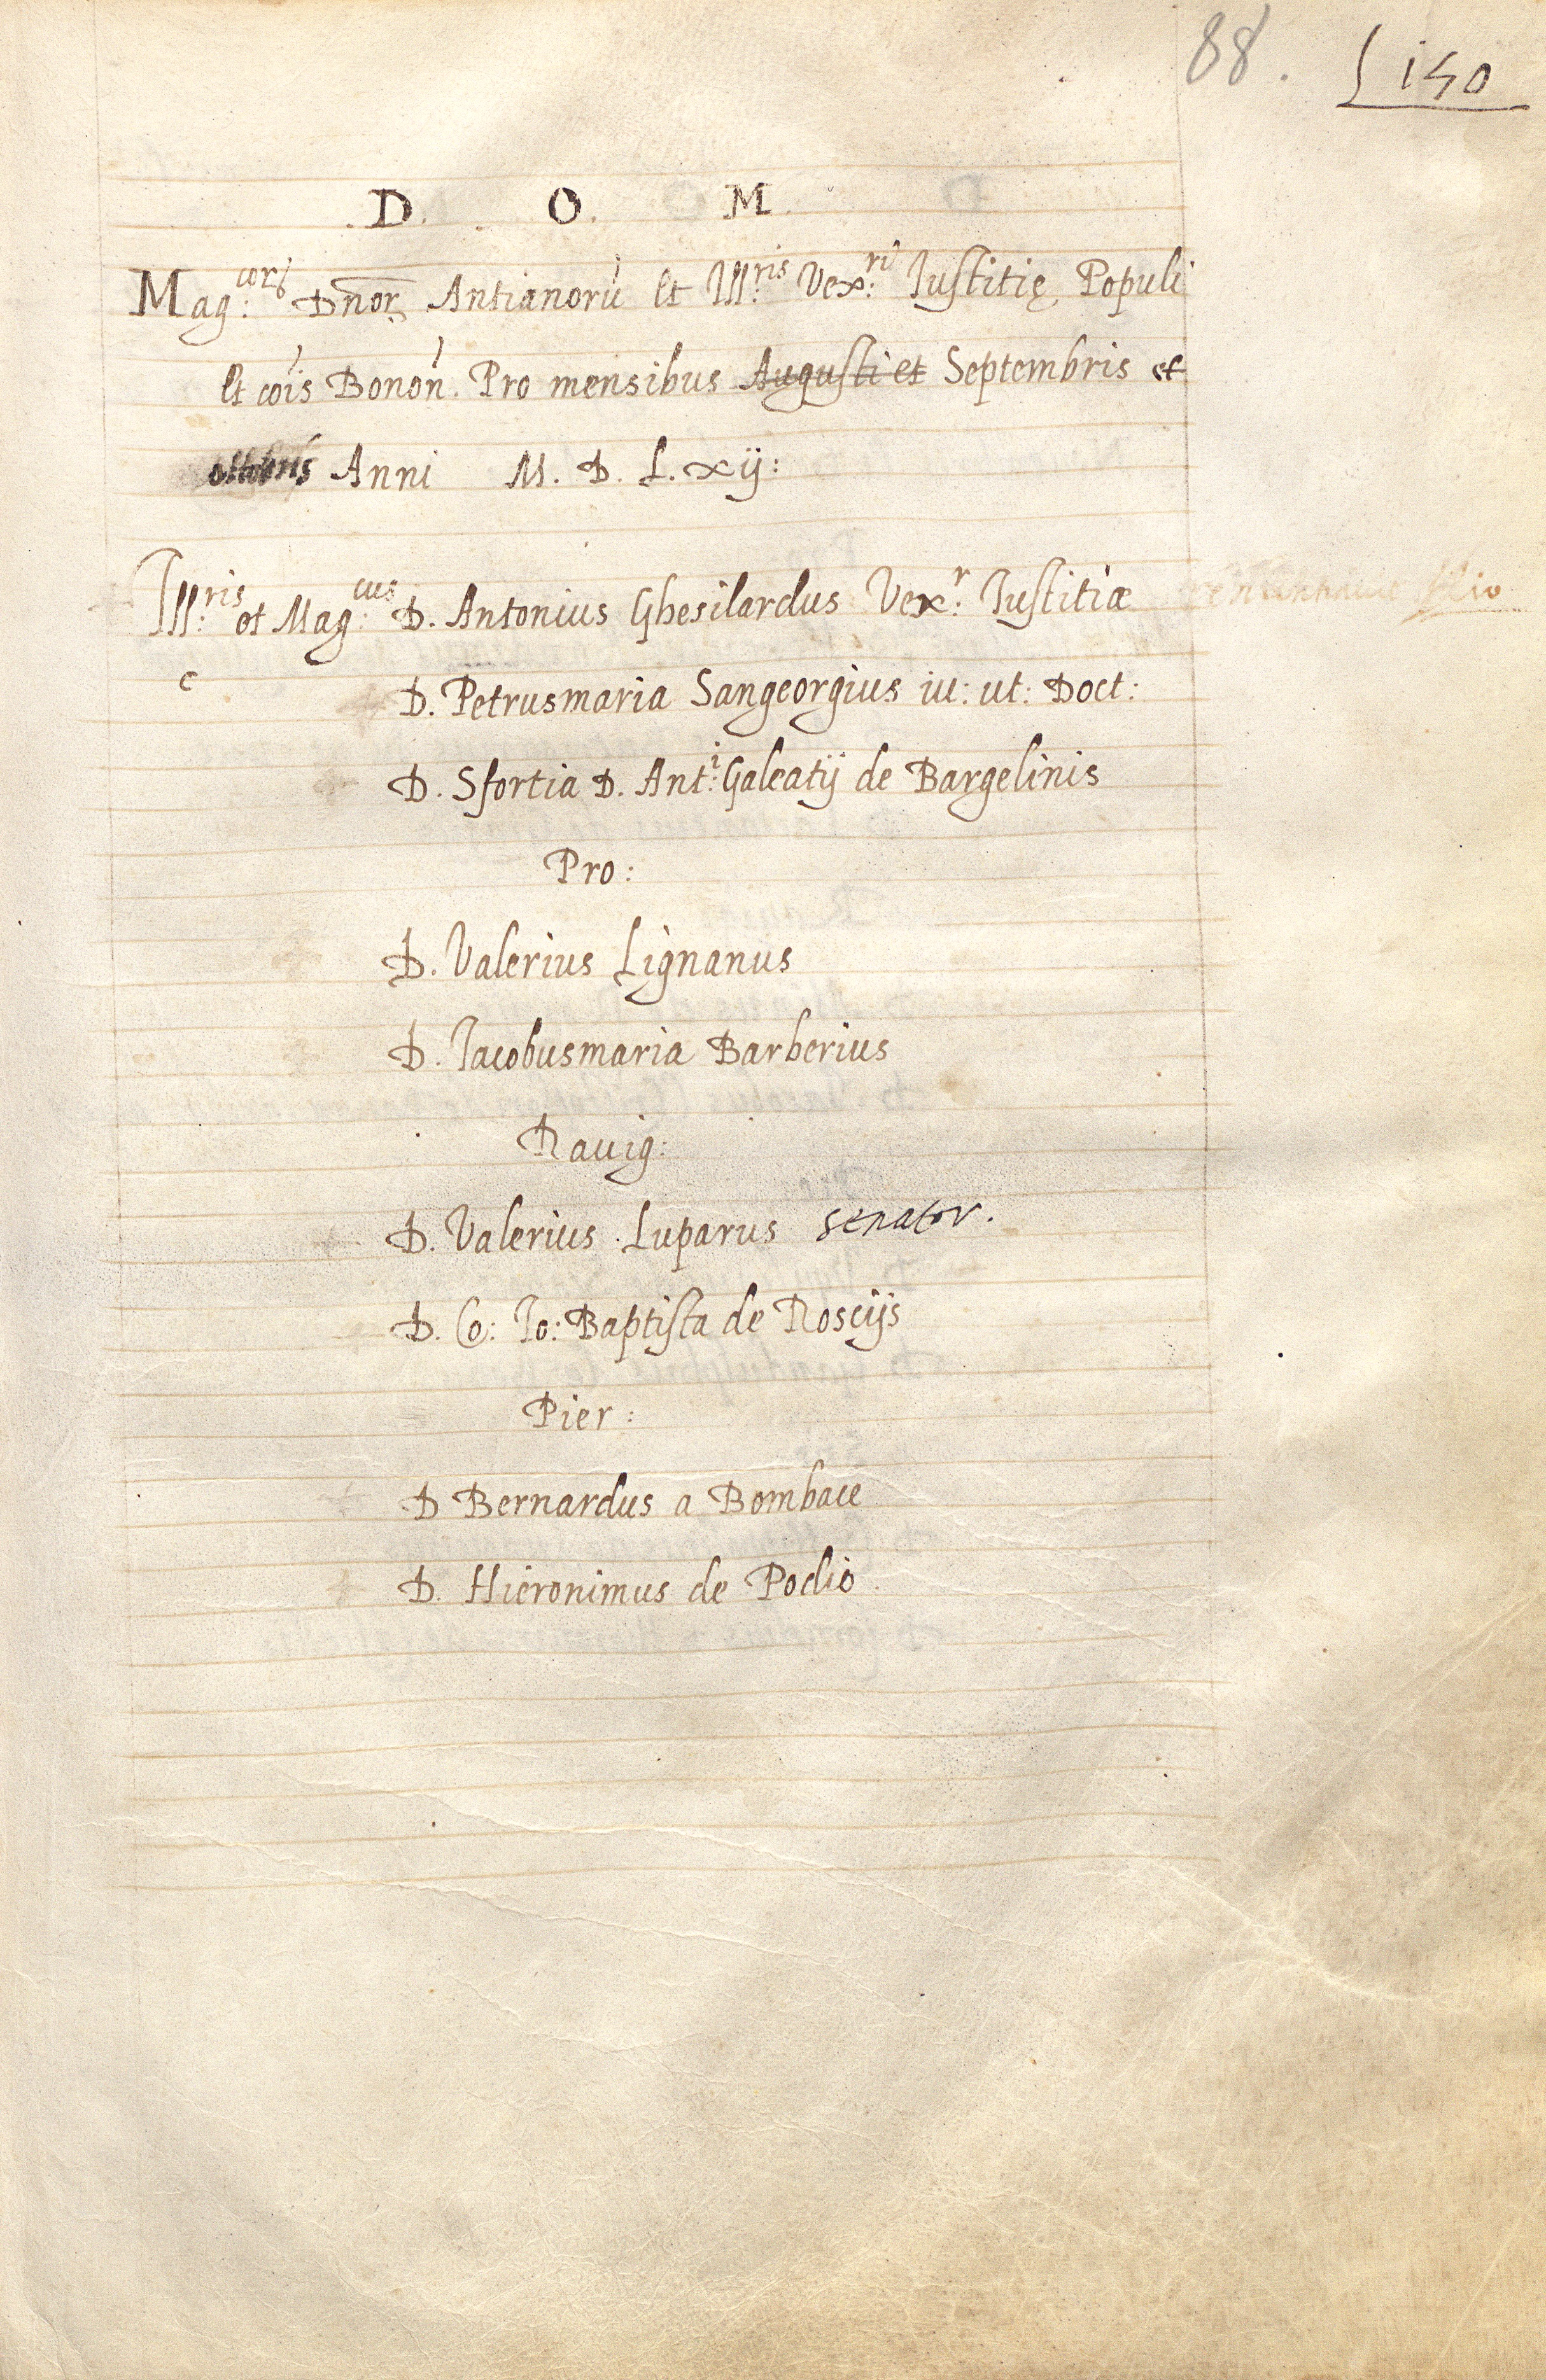 88. 150
D. O. M.
Mag:coru Dnor Antianorù et Ill:ris Vex:ri Iustitię Populi
et cois Bonon. Pro mensibus Augusti et Septembris et
octobris Anni M. D. L. xij:
Ill:ris et Mag:cus D. Antonius Ghesilardus Vex:r Iustitiæ
c D. Petrusmaria Sangeorgius iu: ut: Doct:
D. Sfortia D. Ant:i Galeatij de Bargelinis
Pro:
D. Valerius Lignanus
D. Iacobusmaria Barberius
Rauig:
D. Valerius Luparus senator.
D. Co: Io: Baptista de Rosciis
Pier:
D Bernardus a Bombace
D. Hieronimus de Podio.